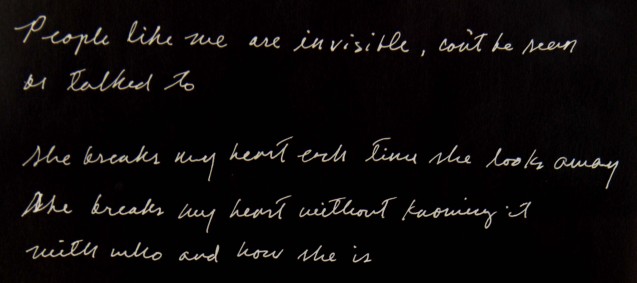 People like me are invisible, can't be seen
or talked to
She breaks my heart each time she looks away
She breaks my heart without knowing it
with who and how she is